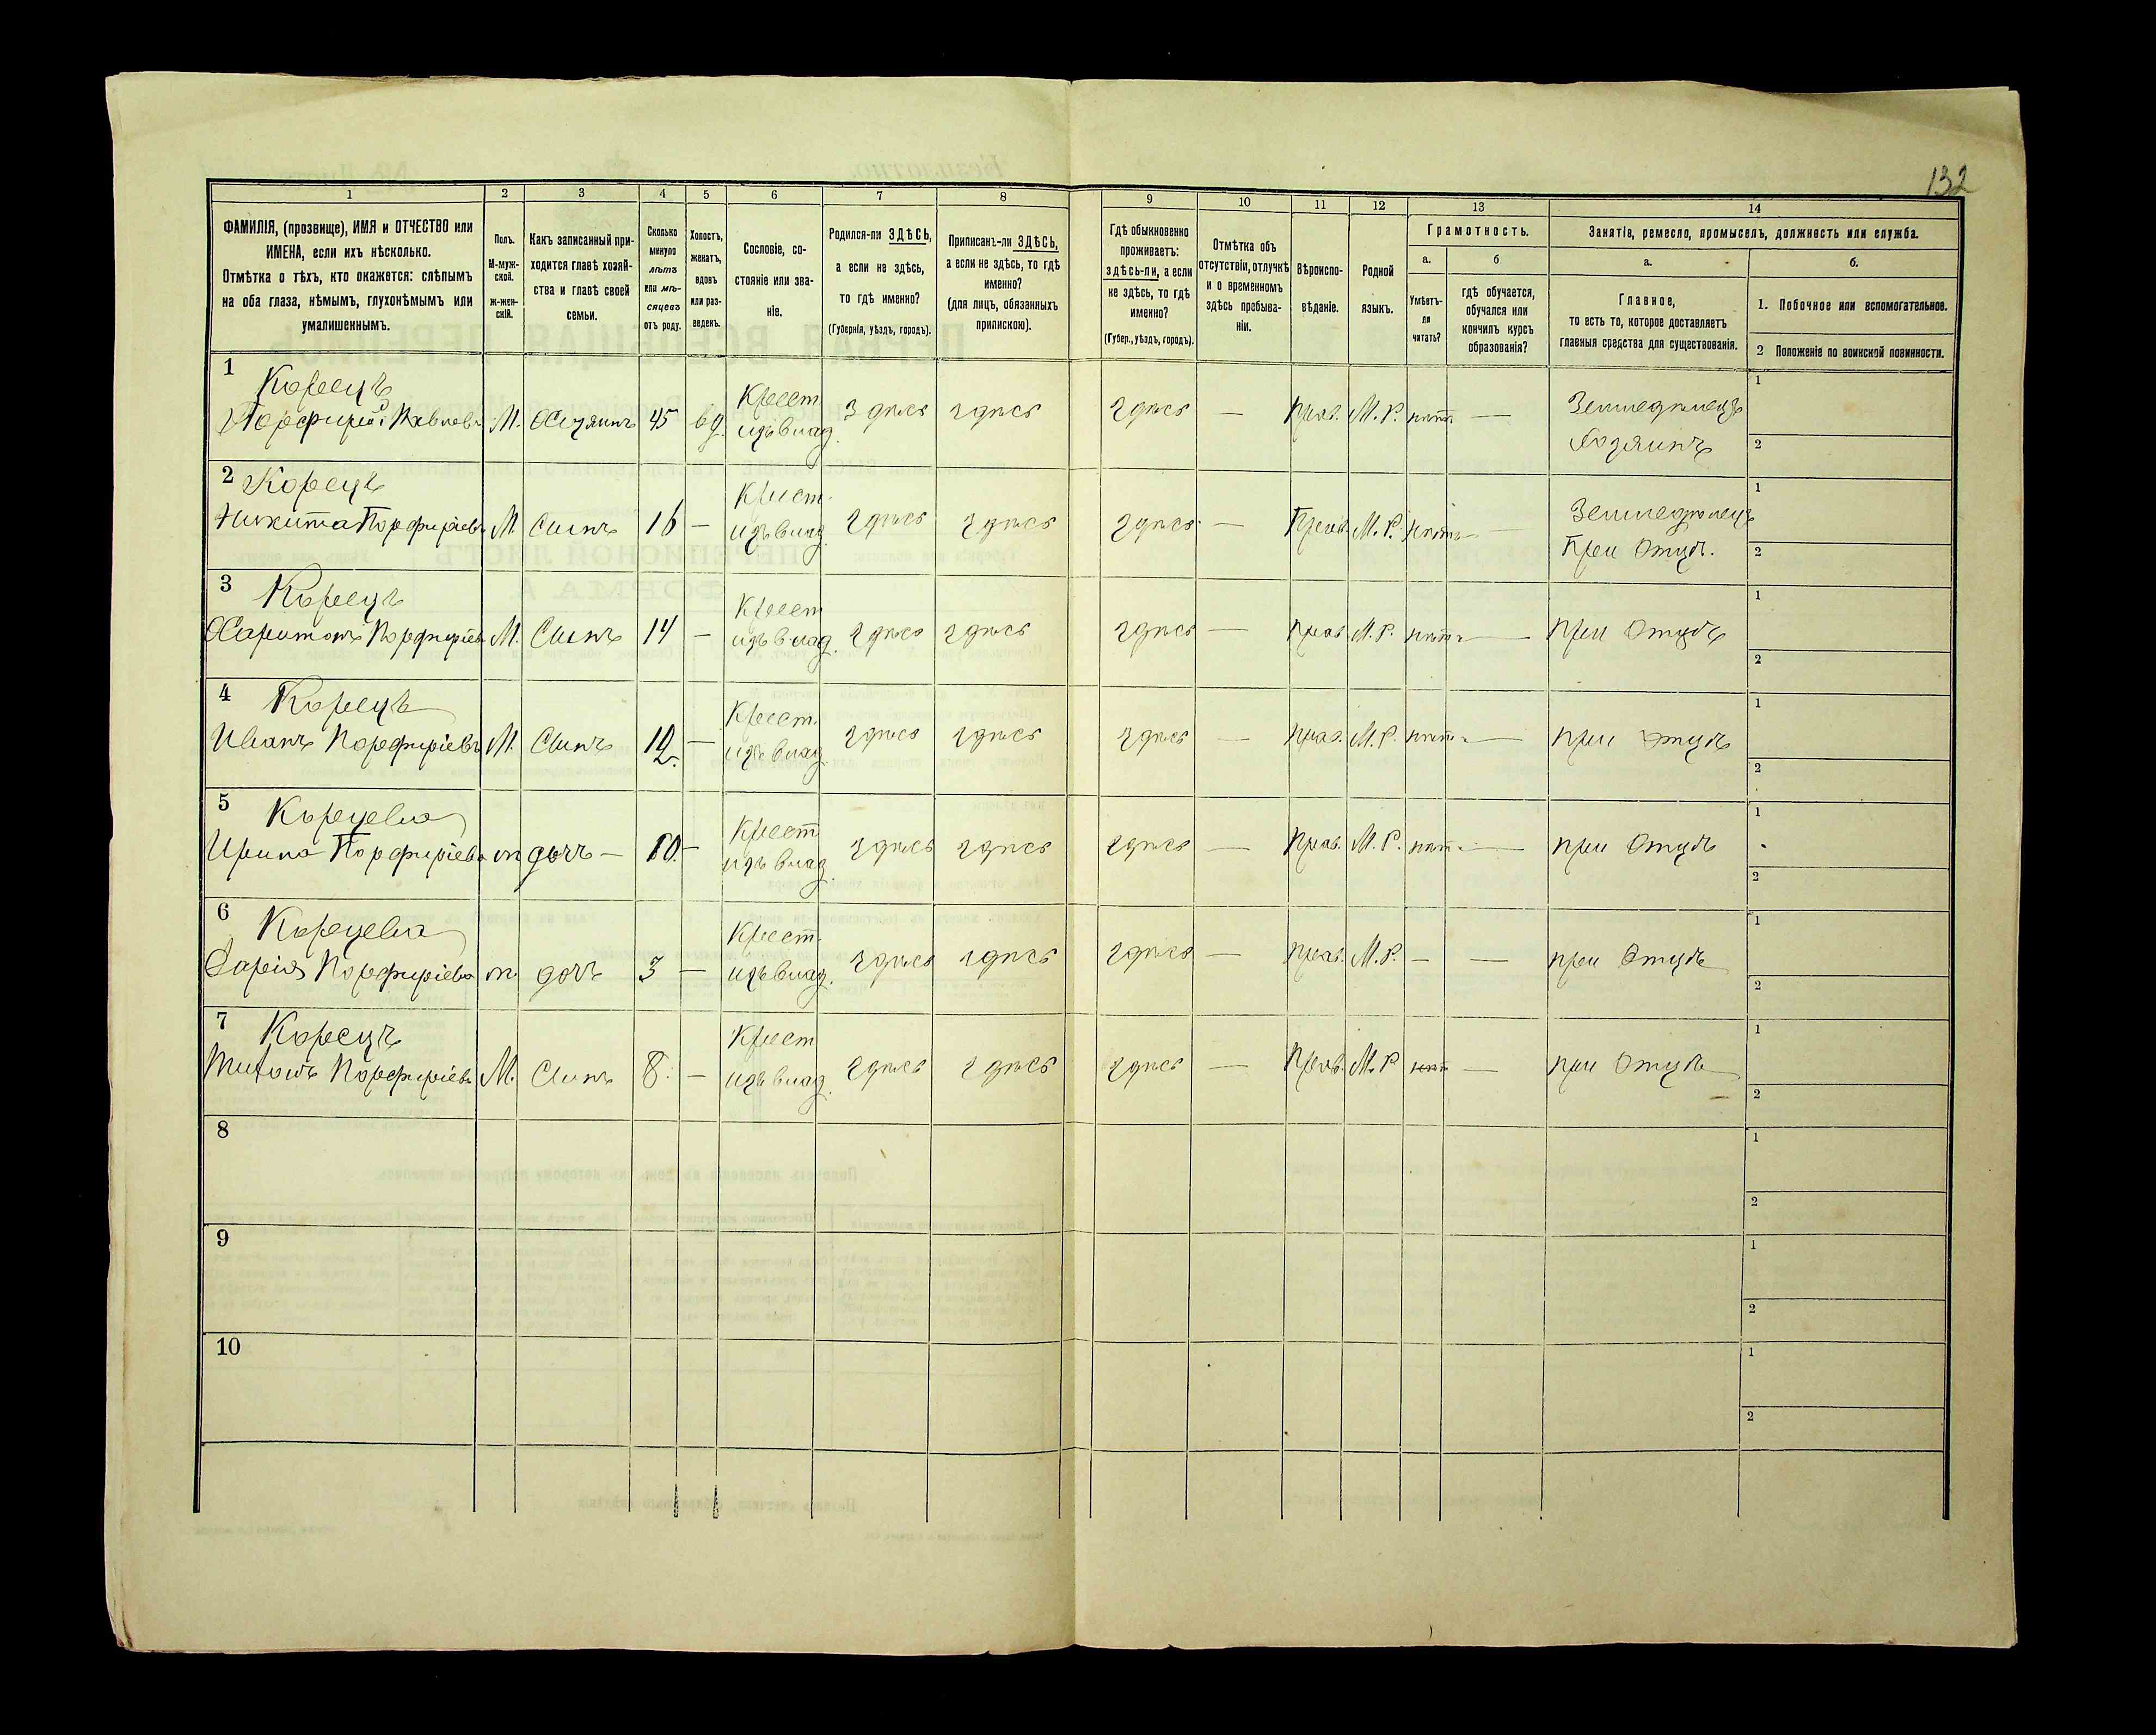 132
1 2 3 4 5 6 7 8 9 10 11 12 13 14
ФАМИЛІЯ, (прозвище), ИМЯ и ОТЧЕСТВО или
ИМЕНА, если ихъ нѣсколько.
Отмѣтка о тѣхъ, кто окажется: слѣпымъ
на оба глаза, нѣмымъ, глухонѣмымъ или
умалишеннымъ.
Полъ.
М-муж-
ской.
ж-жен-
скій.
Какъ записанный при-
ходится главѣ хозяй-
ства и главѣ своей
семьи.
Сколько
минуло
лѣтъ
или мѣ-
сяцевъ
отъ роду.
Холостъ,
женатъ,
вдовъ
или раз-
веденъ.
Сословіе, со-
стояніе или зва-
ніе.
Родился-ли ЗДѢСЬ,
а если не здѣсь,
то гдѣ именно?
(Губернія, уѣздъ, городъ).
Приписанъ-ли ЗДѢСЬ,
а если не здѣсь, то гдѣ
именно?
(для лицъ, обязанныхъ
припискою).
Гдѣ обыкновенно
проживаетъ:
здѣсь-ли, а если
не здѣсь, то гдѣ
именно?
(Губер., уѣздъ, городъ).
Отмѣтка объ
отсутствіи, отлучкѣ
и о временномъ
здѣсь пребыва-
ніи.
Вѣроиспо-
вѣданіе.
Родной
языкъ.
Грамотность.
а.
Умѣетъ-
ли
читать?
б
гдѣ обучается,
обучался или
кончилъ курсъ
образованія?
Занятіе, ремесло, промыселъ, должность или служба.
а.
Главное,
то есть то, которое доставляетъ
главныя средства для существованія.
б.
1. Побочное или вспомогательное.
2 Положеніе по воинской повинности.
1 Корецъ Крест. Земледѣлецъ 1
Порфирій Павлов. М. Хозяинъ 45 вд. изъ влад. Здѣсь здѣсь здѣсь — Прав. М. Р. нѣтъ — Хозяинъ 2
2 Корецъ Крест. Земледѣлецъ 1
Никита Порфиріевъ М. Сынъ 16 — изъ влад. здѣсь здѣсь здѣсь — Прав. М. Р. нѣтъ — При Отцѣ. 2
3 Корецъ Крест. 1
Харитонъ Порфиріев М. Сынъ 14 — изъ влад. здѣсь здѣсь здѣсь — прав. М. Р. нѣтъ — при Отцѣ 2
4 Корецъ Крест. 1
Иванъ Порфиріевъ М. Сынъ 12. — изъ влад. здѣсь здѣсь здѣсь — прав. М. Р. нѣтъ — при Отцѣ 2
5 Корецева Крест 1
Ирина Порфиріева ж дочь — 10. — изъ влад. здѣсь здѣсь здѣсь — Прав. М. Р. нѣтъ — при Отцѣ 2
6 Корецева Крест. 1
Дарія Порфиріева ж. дочь 3 — изъ влад. здѣсь здѣсь здѣсь — прав. М. Р. — — при Отцѣ 2
7 Корецъ Крест 1
Порфиріевъ М. Сынъ 8. — изъ влад. здѣсь здѣсь здѣсь — Прав. М. Р нѣт — при Отцѣ 2
8 1
2
9 1
2
10 1
2